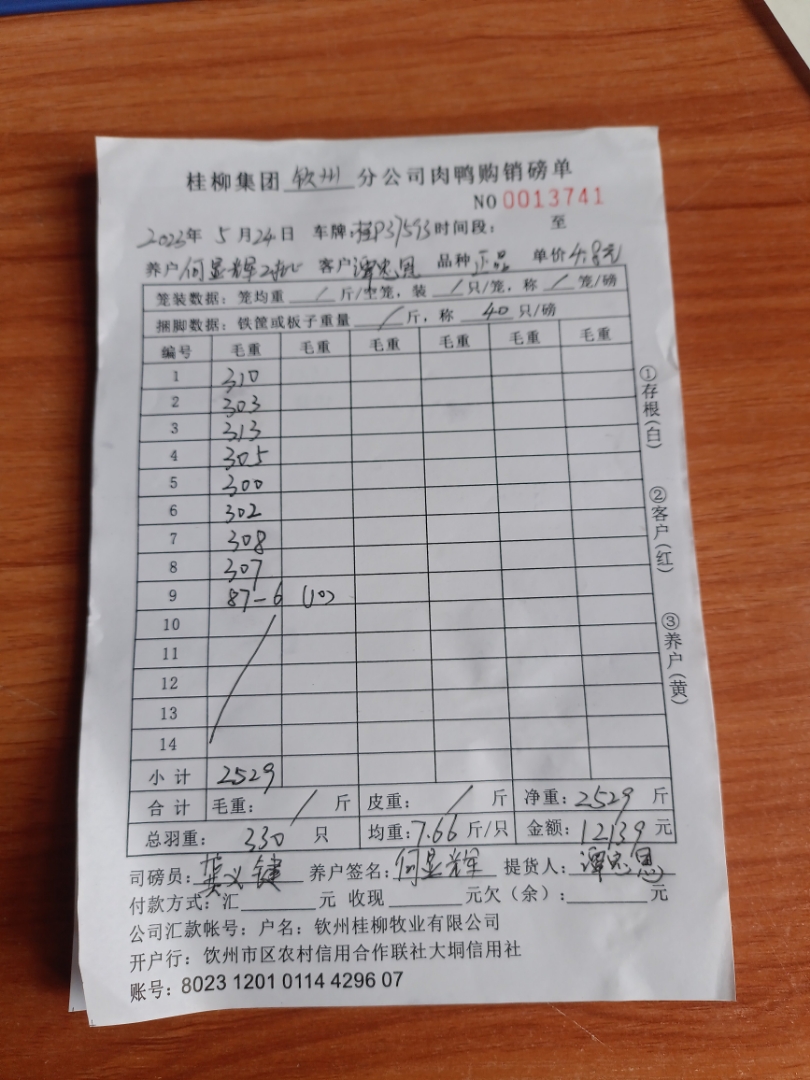 桂柳集团 钦州 分公司肉鸭购销磅单
NO 0013741
2023年 5月24日 车牌:桂P37593 时间段: 至
养户 何显辉 客户 谭忠恩 品种 正品 单价 4.8元
笼装数据: 笼均重 / 斤/空笼, 装 / 只/笼, 称 / 笼/磅
捆脚数据: 铁筐或板子重量 / 斤, 称 40 只/磅
编号 毛重 毛重 毛重 毛重 毛重 毛重
1 310
2 303
3 313
4 305
5 300
6 302
7 308
8 307
9 87-6 (10)
10
11
12
13
14
小计 2529
合计 毛重: / 斤 皮重: / 斤 净重: 2529 斤
总羽重: 330 只 均重: 7.66 斤/只 金额: 12139 元
司磅员: 龚义键 养户签名: 何显辉 提货人: 谭忠恩
付款方式: 汇 元 收现 元欠(余): 元
公司汇款帐号: 户名: 钦州桂柳牧业有限公司
开户行: 钦州市区农村信用合作联社大垌信用社
账号: 8023 1201 0114 4296 07
①存根(白)
②客户(红)
③养户(黄)